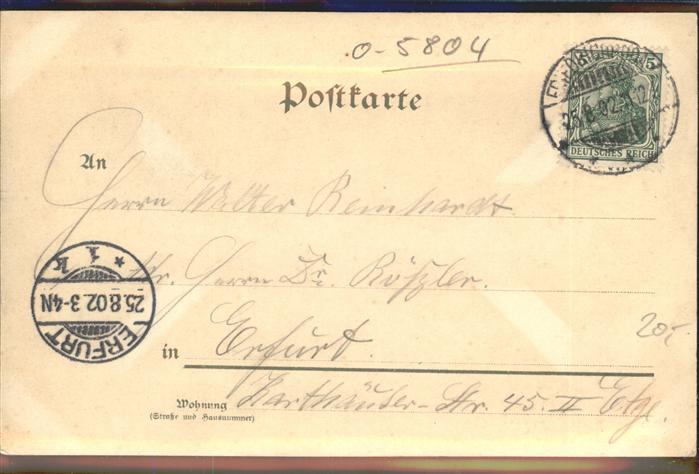 0-5804
Postkarte
5
25.8.02
DEUTSCHES REICH
An
Herrn Walter Reinhardt.
Hr. Herrn Dr. Rößler.
ERFURT
25.8.02.3-4N
* 1 k
in Erfurt.
20,-
Wohnung
(Straße und Hausnummer)
Karthäuser-Str. 45. II Etge.